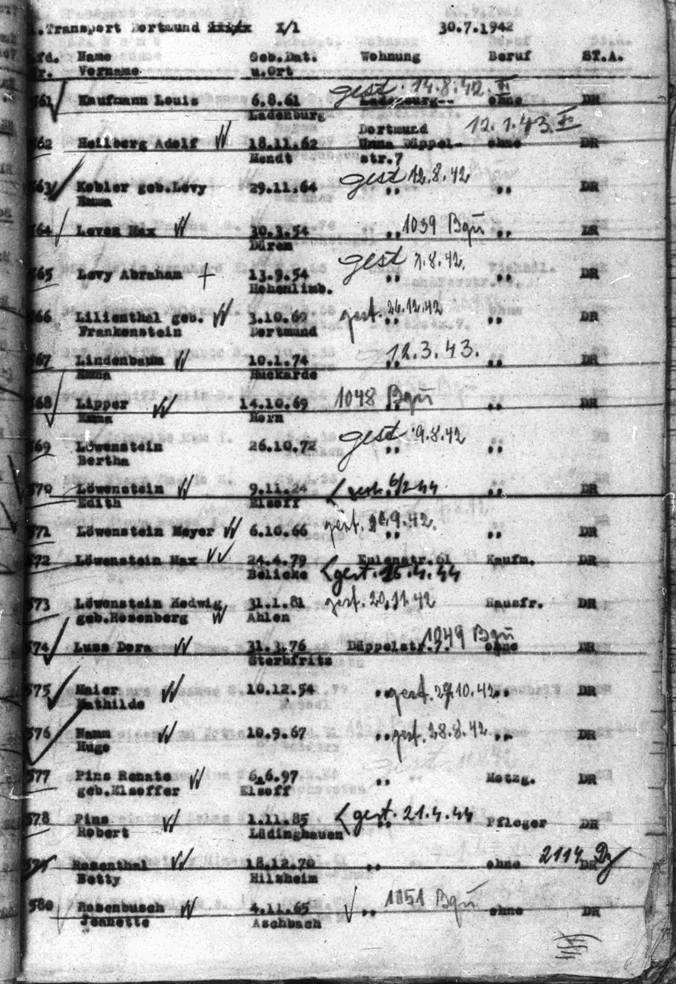 .Transport Dortmund X/1 30.7.1942
fd. Name Geb.Dat. Wohnung Beruf ST.A.
r. Vorname u.Ort
561 Kaufmann Louis 6.8.61 gest. 14.8.42. Ladenburg-- ohne DR
Ladenburg
Dortmund 12.1.43.
562 Heilberg Adolf 18.11.62 Unna Düppel- ohne DR
Mendt str.7
563 Kobler geb.Levy 29.11.64 gest 12.8.42 ,, ,, DR
Emma
564 Leven Max 30.3.54 ,, 1039 ,, DR
Düren
565 Levy Abraham 13.9.54 gest 1.8.42. ,, ,, DR
Hohenlimb.
566 Lilienthal geb. 3.10.69 gest. 26.12.42 ,, ,, DR
Frankenstein Dortmund
567 Lindenbaum 10.1.74 12.3.43. ,, ,, DR
Emma Huckarde
568 Lipper 14.10.69 1048 ,, ,, DR
Emma Horn
569 Löwenstein 26.10.72 gest 9.8.42 ,, ,, DR
Bertha
570 Löwenstein 9.11.24 gest. 6/2 44 ,, DR
Edith Elsoff
571 Löwenstein Meyer 6.10.66 gest. 29.9.42. ,, ,, DR
572 Löwenstein Max 24.4.79 Eulenstr.61 Kaufm. DR
Belicke gest. 15.4.44
573 Löwenstein Hedwig 31.1.81 gest. 20.11.42 Hausfr. DR
geb.Rosenberg Ahlen
574 Luss Dora 31.3.76 Düppelstr.7. 1049 ohne DR
Sterbfritz
575 Maier 10.12.54 ,, gest. 29.10.42 ,, DR
Mathilde
576 Namm 10.9.67 ,, gest. 28.8.42 ,, DR
Hugo
577 Pins Renate 6.6.97 ,, Metzg. DR
geb.Elsoffer Elsoff
578 Pins 1.11.85 gest. 21.4.44 Pfleger DR
Robert Lüdinghausen
579 Rosenthal 18.12.70 ,, ohne 2114 DR
Betty Hilsheim
580 Rosenbusch 4.11.65 ,, 1051 ohne DR
Jeanette Aschbach